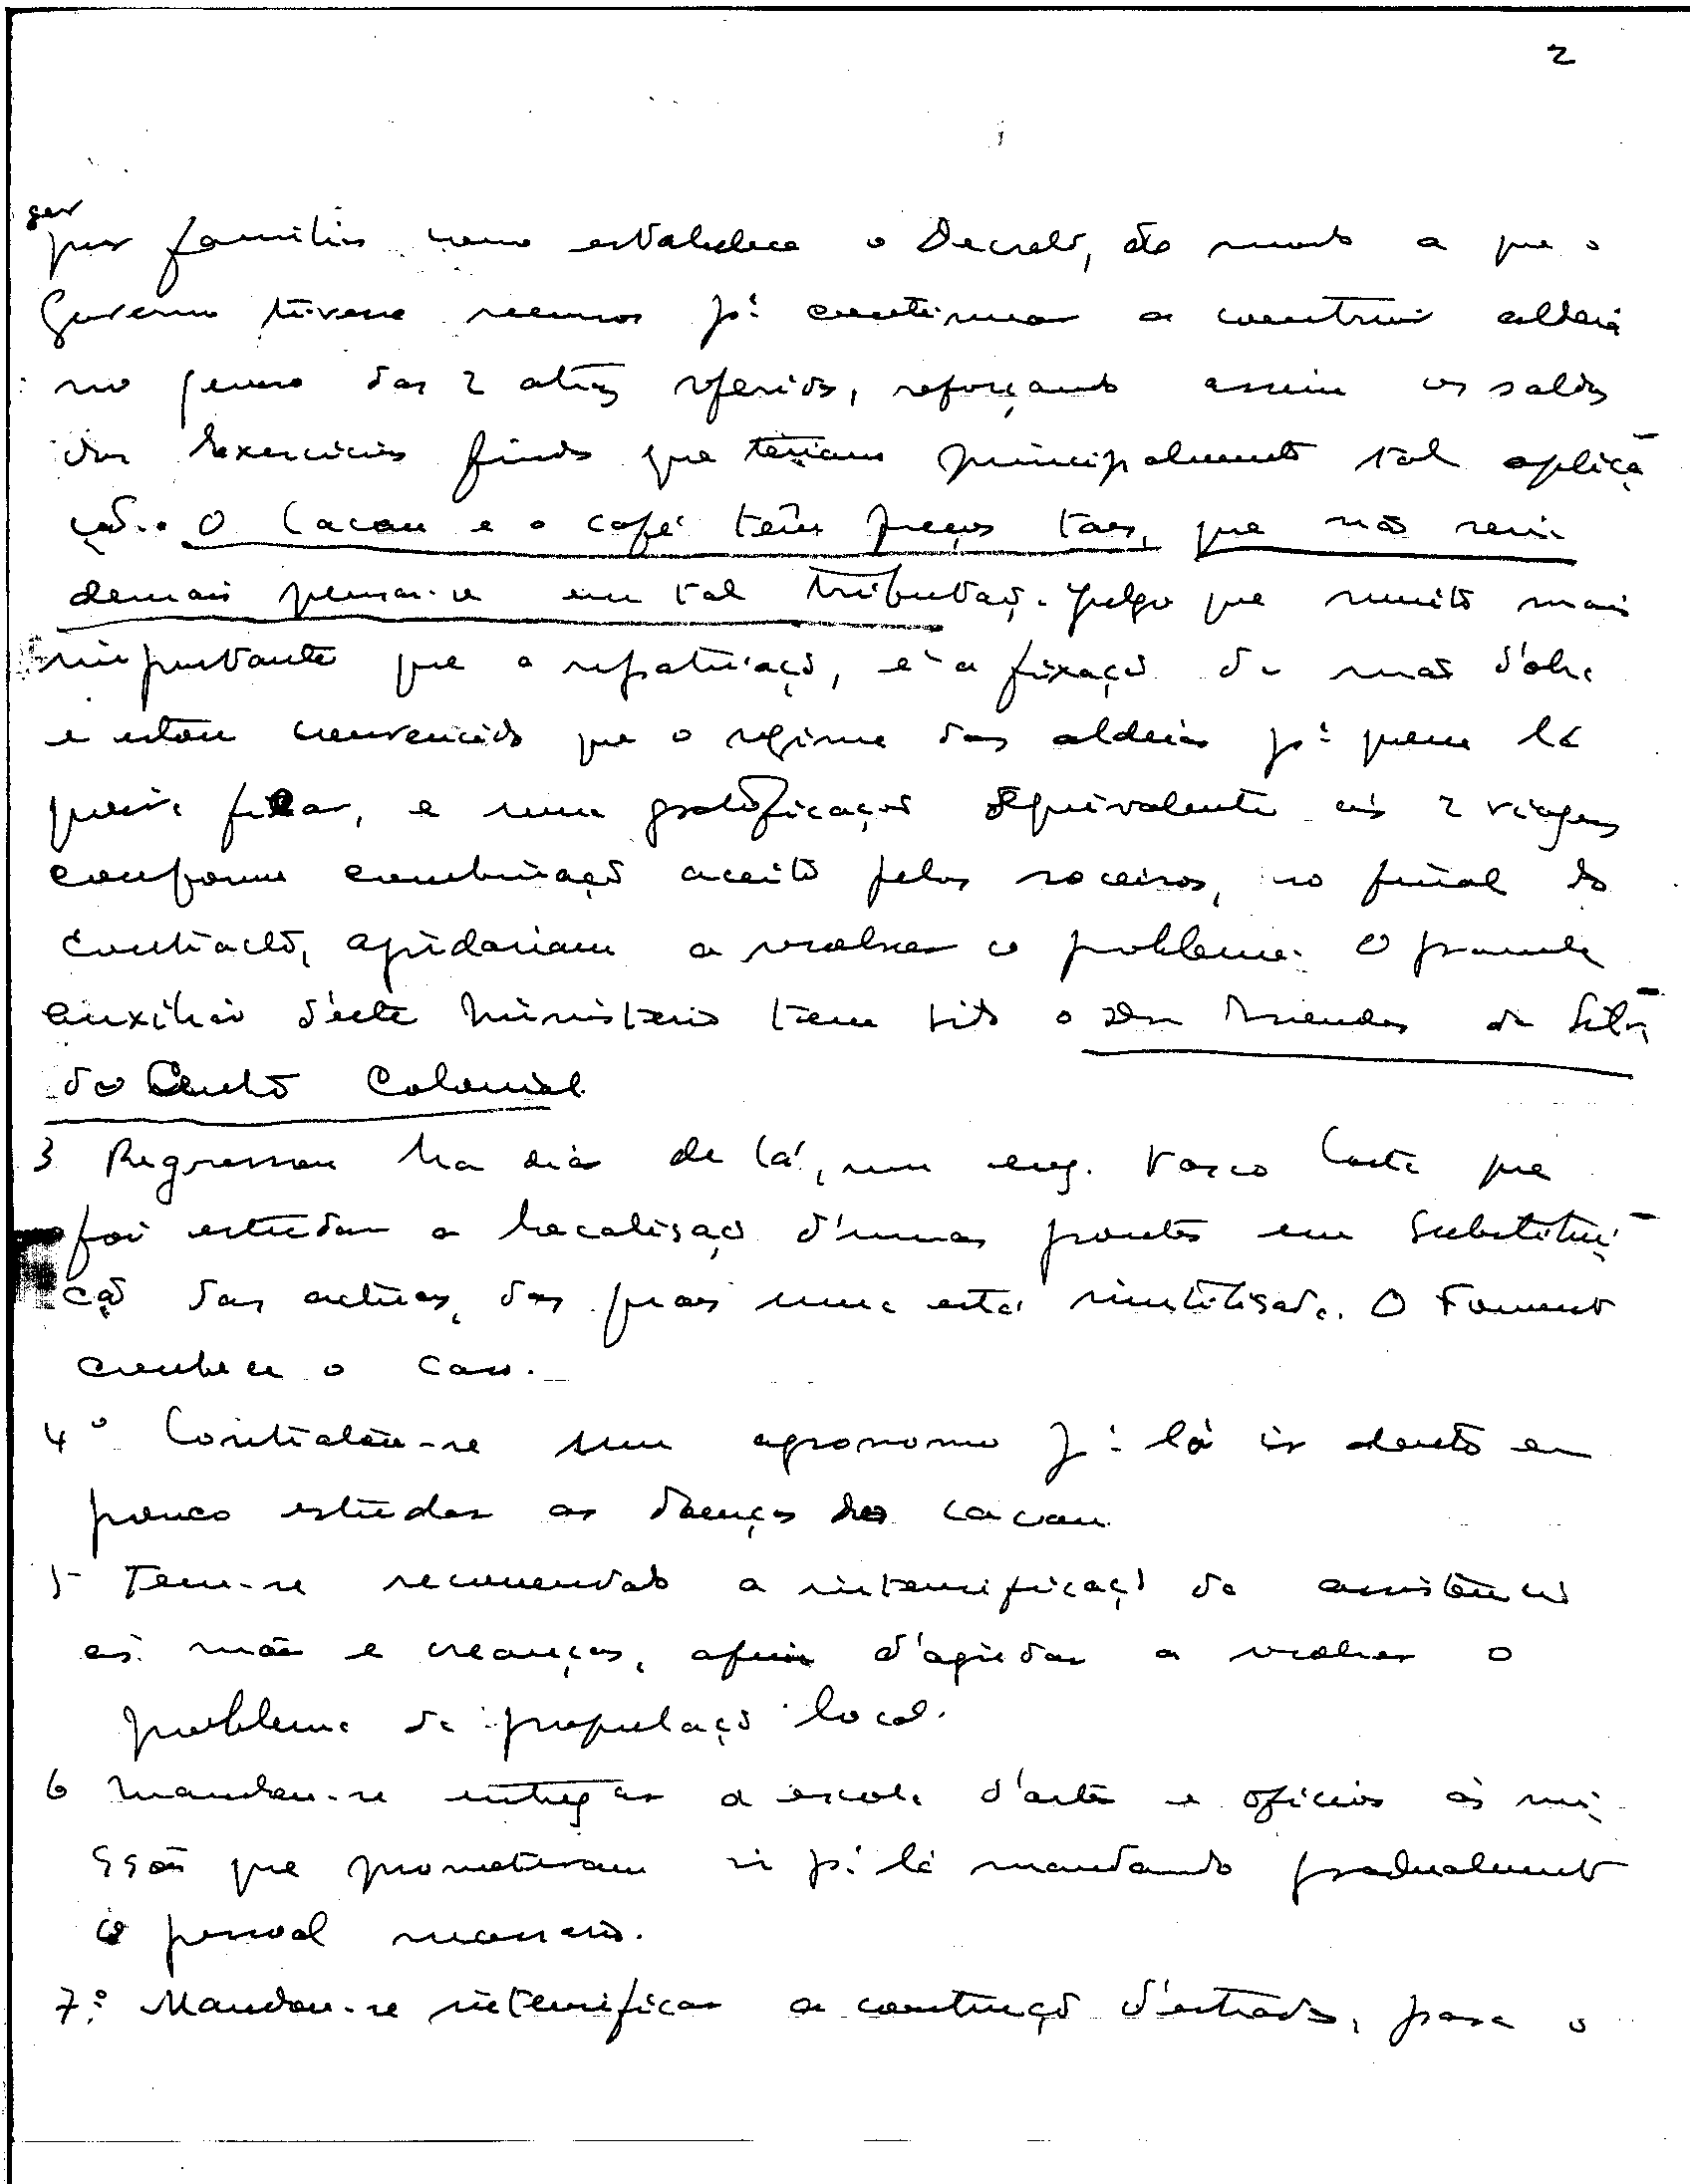 2
por familias como estabelece o Decreto, de modo a que o
Governo tivesse recursos pª continuar a construir aldeia
no genero das 2 atraz referidas, reforçando assim os saldos
dos Exercicios findos que teriam principalmente tal aplica
ção. O Cacau e o café têm preços taes, que não seria
demais pensar-se em tal tributação. Julgo que muito mais
importante que a repatriação, é a fixação da mão d'obra
e estou convencido que o regime das aldeias pª quem lá
queira ficar, e uma gratificação equivalente ás 2 viagens
conforme combinação aceite pelos roceiros, no final do
contracto, ajudariam a resolver o problema. O grande
auxiliar d'este Ministerio tem sido o Mendes da Silva
do Centro Colonial
3 Regressou ha dias de lá, um eng. Vasco Costa que
foi estudar a localisação d'umas pontes em substitui
ção das actuaes, das quaes uma está inutilisada. O Fomento
conhece o caso.
4º Contratou-se um agronomo pª lá ir dentro em
pouco estudar as doenças do cacau
5- Tem-se recomendado a intensificação da assistencia
ás mães e creanças, afim d'ajudar a resolver o
problema da população local.
6 Mandou-se entregar a escola d'artes e oficios ás mis
sões que prometeram ir pª lá mandando gradualmente
o pessoal necessario.
7º Mandou-se intensificar a construção d'estradas, para o